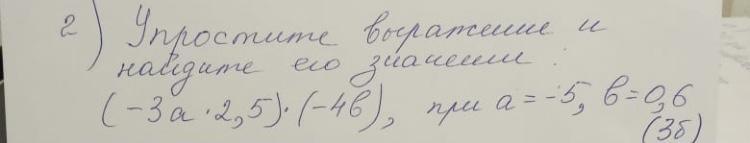 2) Упростите выражение и
найдите его значении.
(-3а·2,5)·(-4в), при а=-5, в=0,6
(3б)